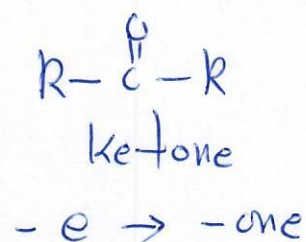 O
||
R-C-R
ketone
-e → -one